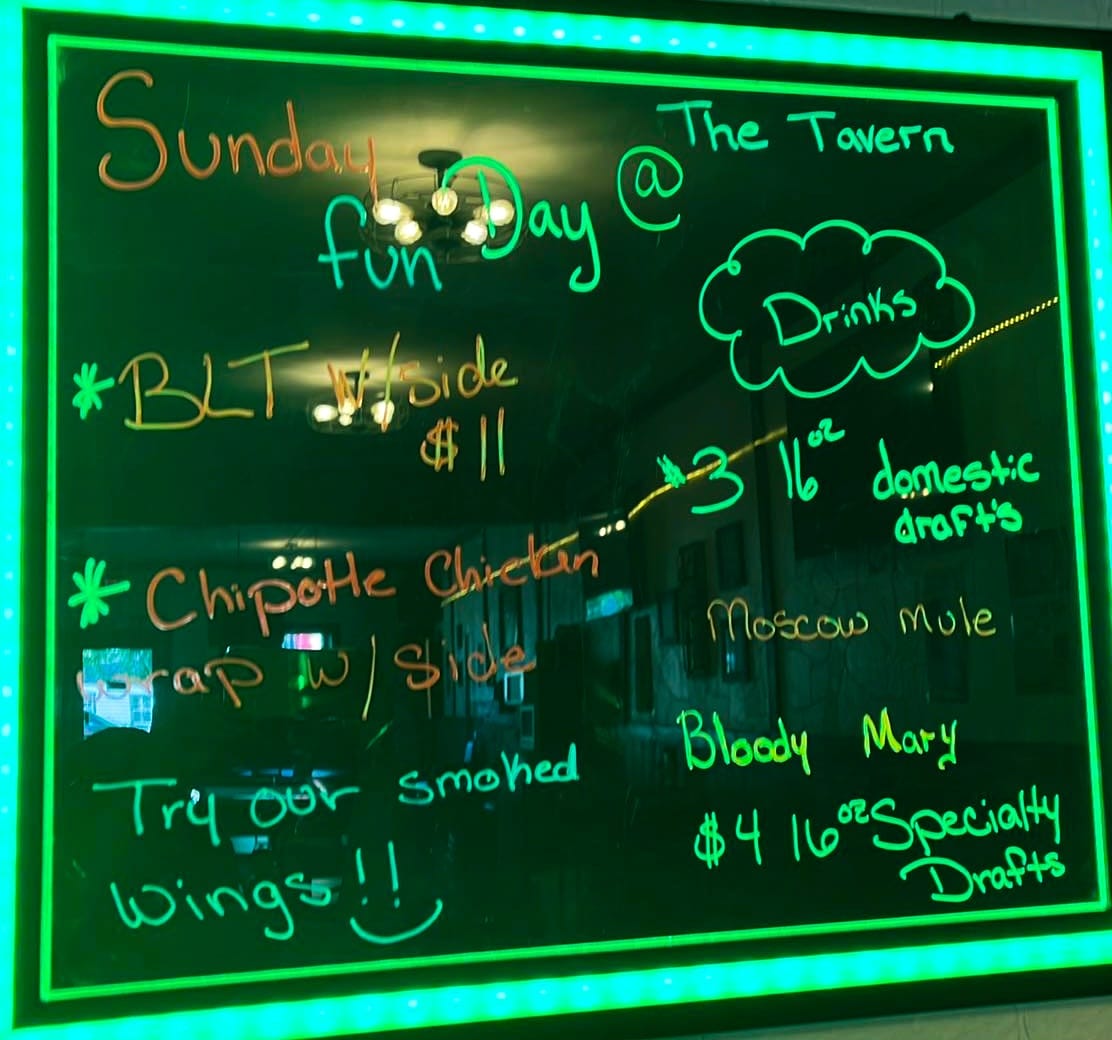 Sunday
fun Day @ The Tavern
* BLT w/side
$11
* Chipotle Chicken
wrap w/ Side
Try our smoked
Wings!!
Drinks
$3 16oz domestic
draft's
Moscow Mule
Bloody Mary
$4 16oz Specialty
Drafts